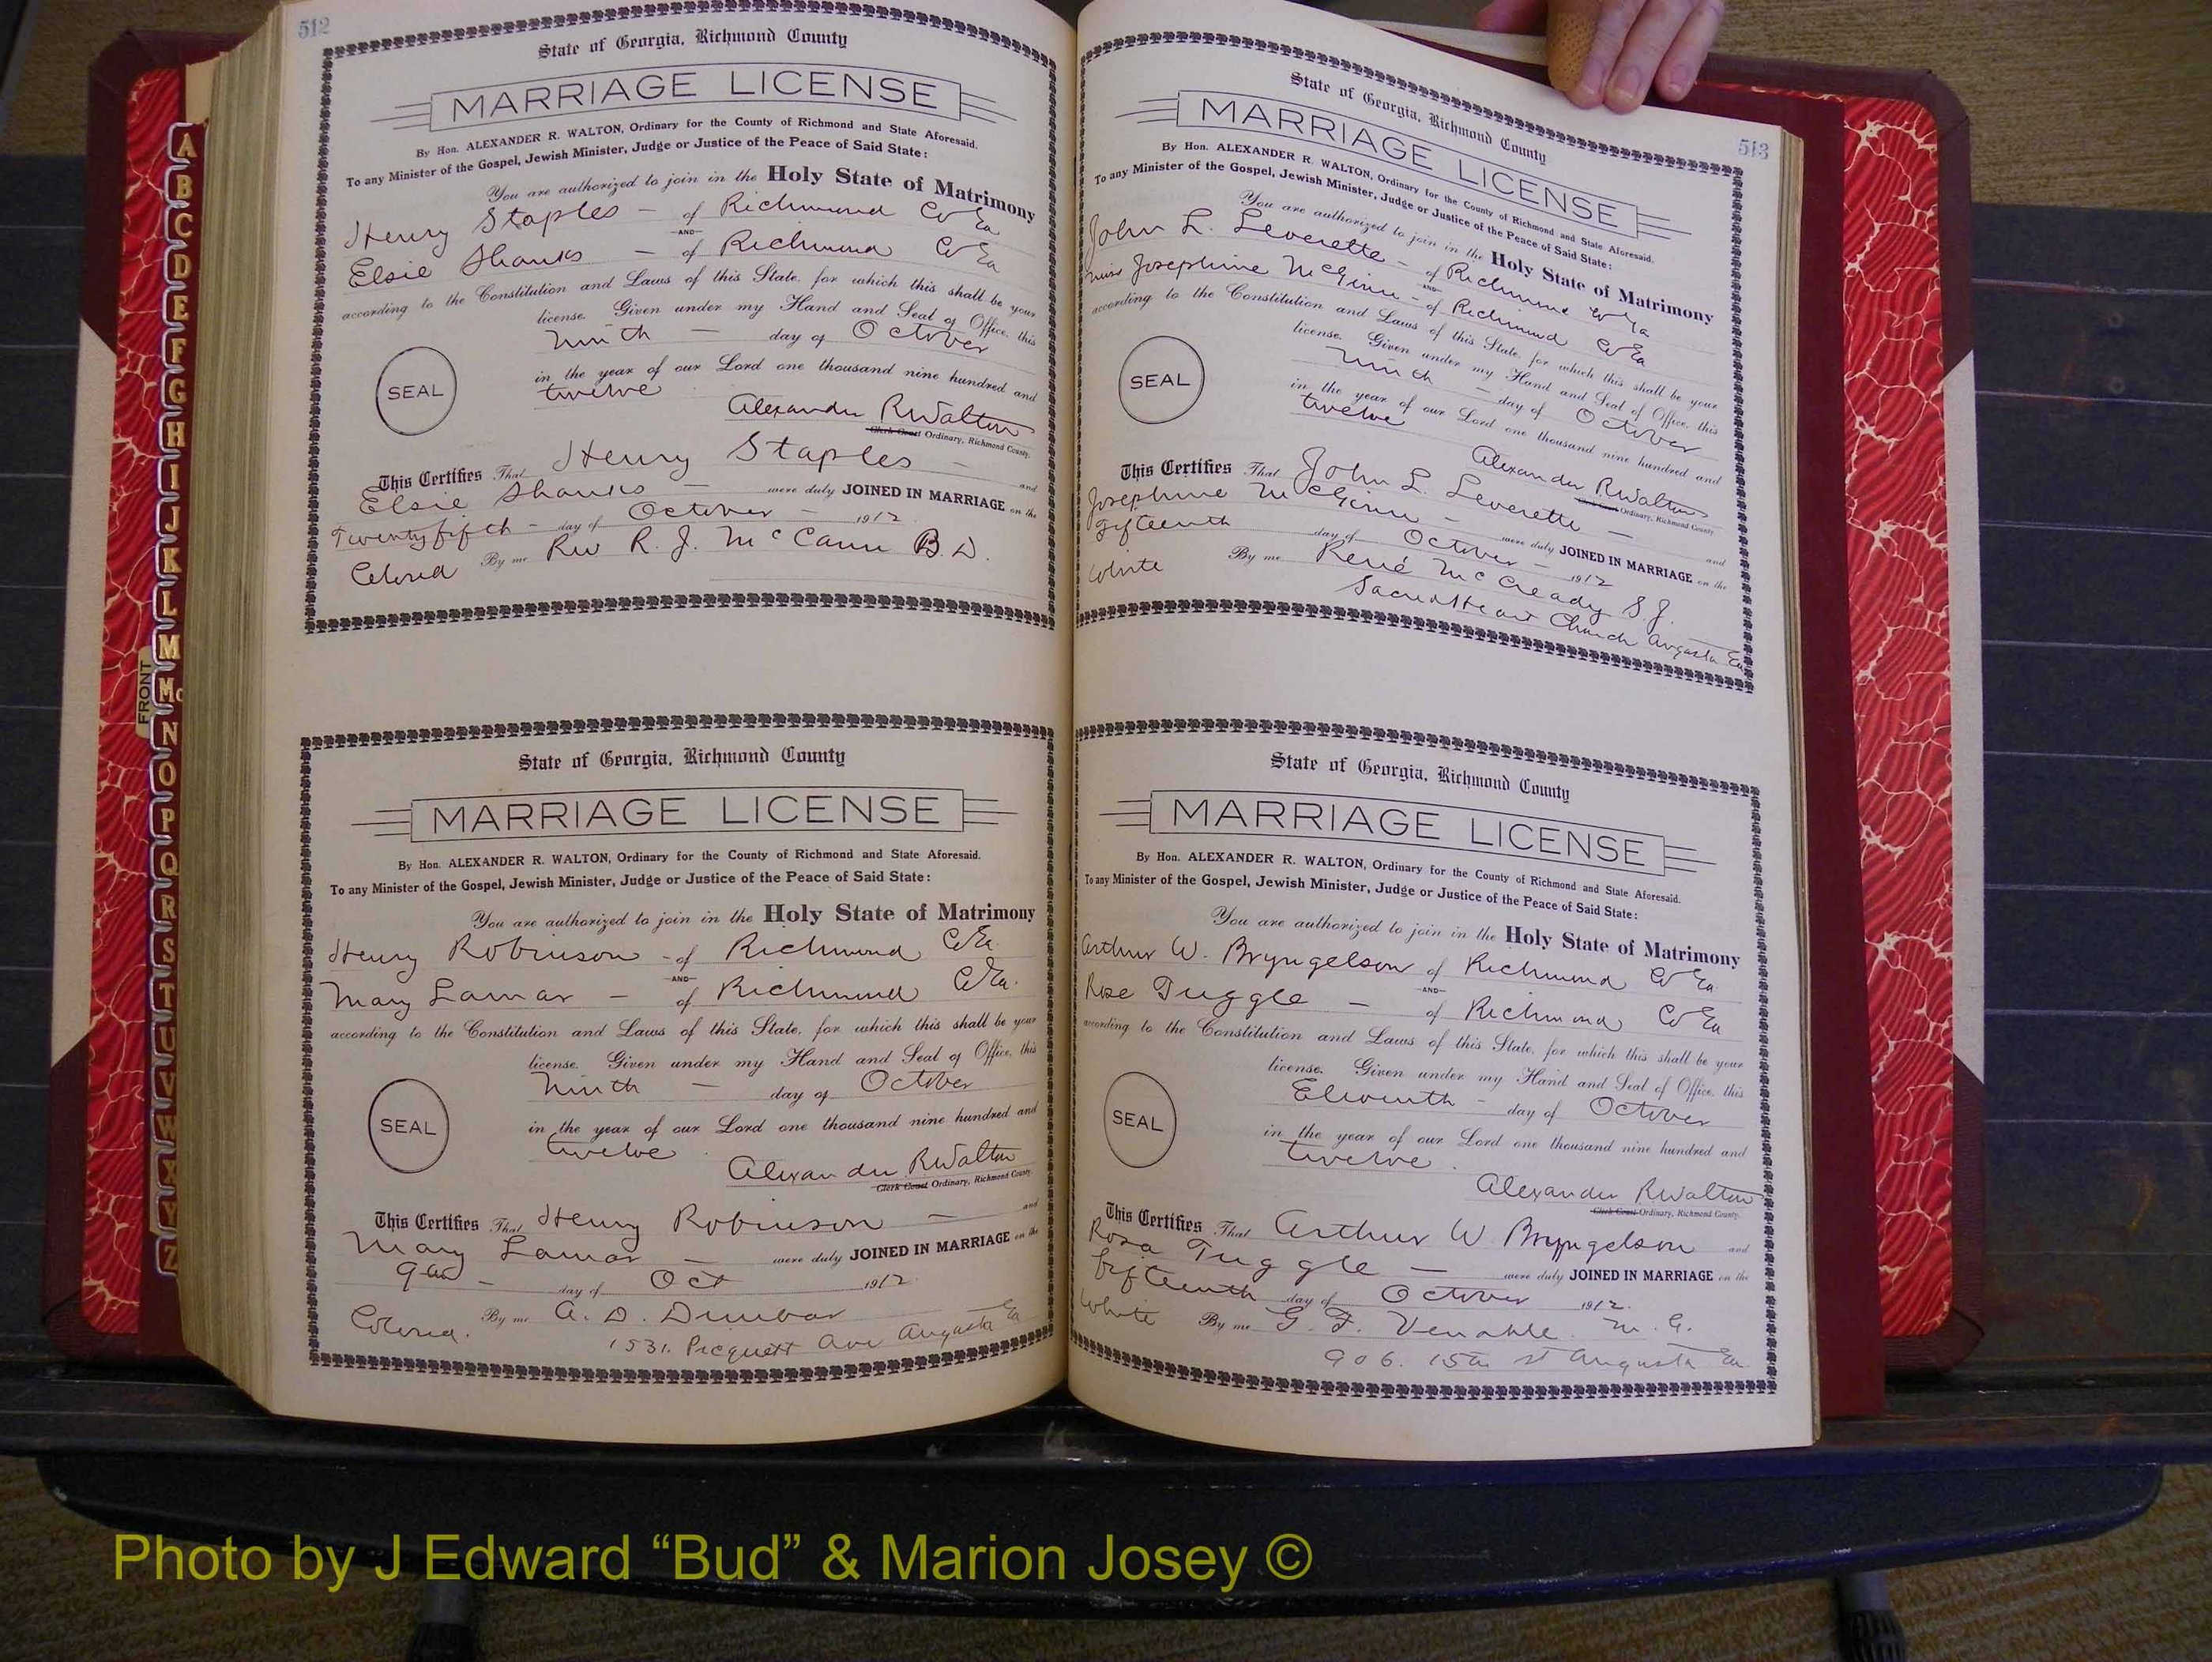 512
State of Georgia, Richmond County
MARRIAGE LICENSE
By Hon. ALEXANDER R. WALTON, Ordinary for the County of Richmond and State Aforesaid.
To any Minister of the Gospel, Jewish Minister, Judge or Justice of the Peace of Said State:
You are authorized to join in the Holy State of Matrimony
Henry Staples - of Richmond Co Ga
AND
Elsie Shanks - of Richmond Co Ga
according to the Constitution and Laws of this State, for which this shall be your
license. Given under my Hand and Seal of Office, this
Ninth - day of October
in the year of our Lord one thousand nine hundred and
twelve
SEAL
Alexander R Walton
Clerk Court Ordinary, Richmond County.
This Certifies That Henry Staples - and
Elsie Shanks - were duly JOINED IN MARRIAGE on the
Twentyfifth - day of October - 1912
Colored By me Rev R. J. McCann B.D.
State of Georgia, Richmond County
MARRIAGE LICENSE
By Hon. ALEXANDER R. WALTON, Ordinary for the County of Richmond and State Aforesaid.
To any Minister of the Gospel, Jewish Minister, Judge or Justice of the Peace of Said State:
You are authorized to join in the Holy State of Matrimony
Henry Robinson - of Richmond Co Ga
AND
Mary Lamar - of Richmond Co Ga.
according to the Constitution and Laws of this State, for which this shall be your
license. Given under my Hand and Seal of Office, this
Ninth - day of October
in the year of our Lord one thousand nine hundred and
twelve
SEAL
Alexander R Walton
Clerk Court Ordinary, Richmond County.
This Certifies That Henry Robinson - and
Mary Lamar - were duly JOINED IN MARRIAGE on the
9th - day of Oct 1912
Colored. By me A. D. Dunbar
1531. Picquett Ave Augusta Ga
513
State of Georgia, Richmond County
MARRIAGE LICENSE
By Hon. ALEXANDER R. WALTON, Ordinary for the County of Richmond and State Aforesaid.
To any Minister of the Gospel, Jewish Minister, Judge or Justice of the Peace of Said State:
You are authorized to join in the Holy State of Matrimony
John L. Leverette - of Richmond Co Ga
AND
Miss Josephine McGinn - of Richmond Co Ga
according to the Constitution and Laws of this State, for which this shall be your
license. Given under my Hand and Seal of Office, this
Ninth - day of October
in the year of our Lord one thousand nine hundred and
twelve
SEAL
Alexander R Walton
Clerk Court Ordinary, Richmond County
This Certifies That John L. Leverette - and
Josephine McGinn - were duly JOINED IN MARRIAGE on the
Fifteenth day of October - 1912
White By me René McCready S.J.
Sacred Heart Church Augusta Ga
State of Georgia, Richmond County
MARRIAGE LICENSE
By Hon. ALEXANDER R. WALTON, Ordinary for the County of Richmond and State Aforesaid.
To any Minister of the Gospel, Jewish Minister, Judge or Justice of the Peace of Said State:
You are authorized to join in the Holy State of Matrimony
Arthur W. Bryngelson of Richmond Co Ga
AND
Rose Tuggle - of Richmond Co Ga
according to the Constitution and Laws of this State, for which this shall be your
license. Given under my Hand and Seal of Office, this
Eleventh - day of October
in the year of our Lord one thousand nine hundred and
twelve.
SEAL
Alexander R Walton
Clerk Court Ordinary, Richmond County.
This Certifies That Arthur W Bryngelson and
Rosa Tuggle - were duly JOINED IN MARRIAGE on the
fifteenth day of October 1912.
White By me G. F. Venable. M. G.
906. 15th st Augusta Ga
FRONT
A
B
C
D
E
F
G
H
I
J
K
L
M
Mc
N
O
P
Q
R
S
T
U
V
W
X
Y
Z
Photo by J Edward “Bud” & Marion Josey ©